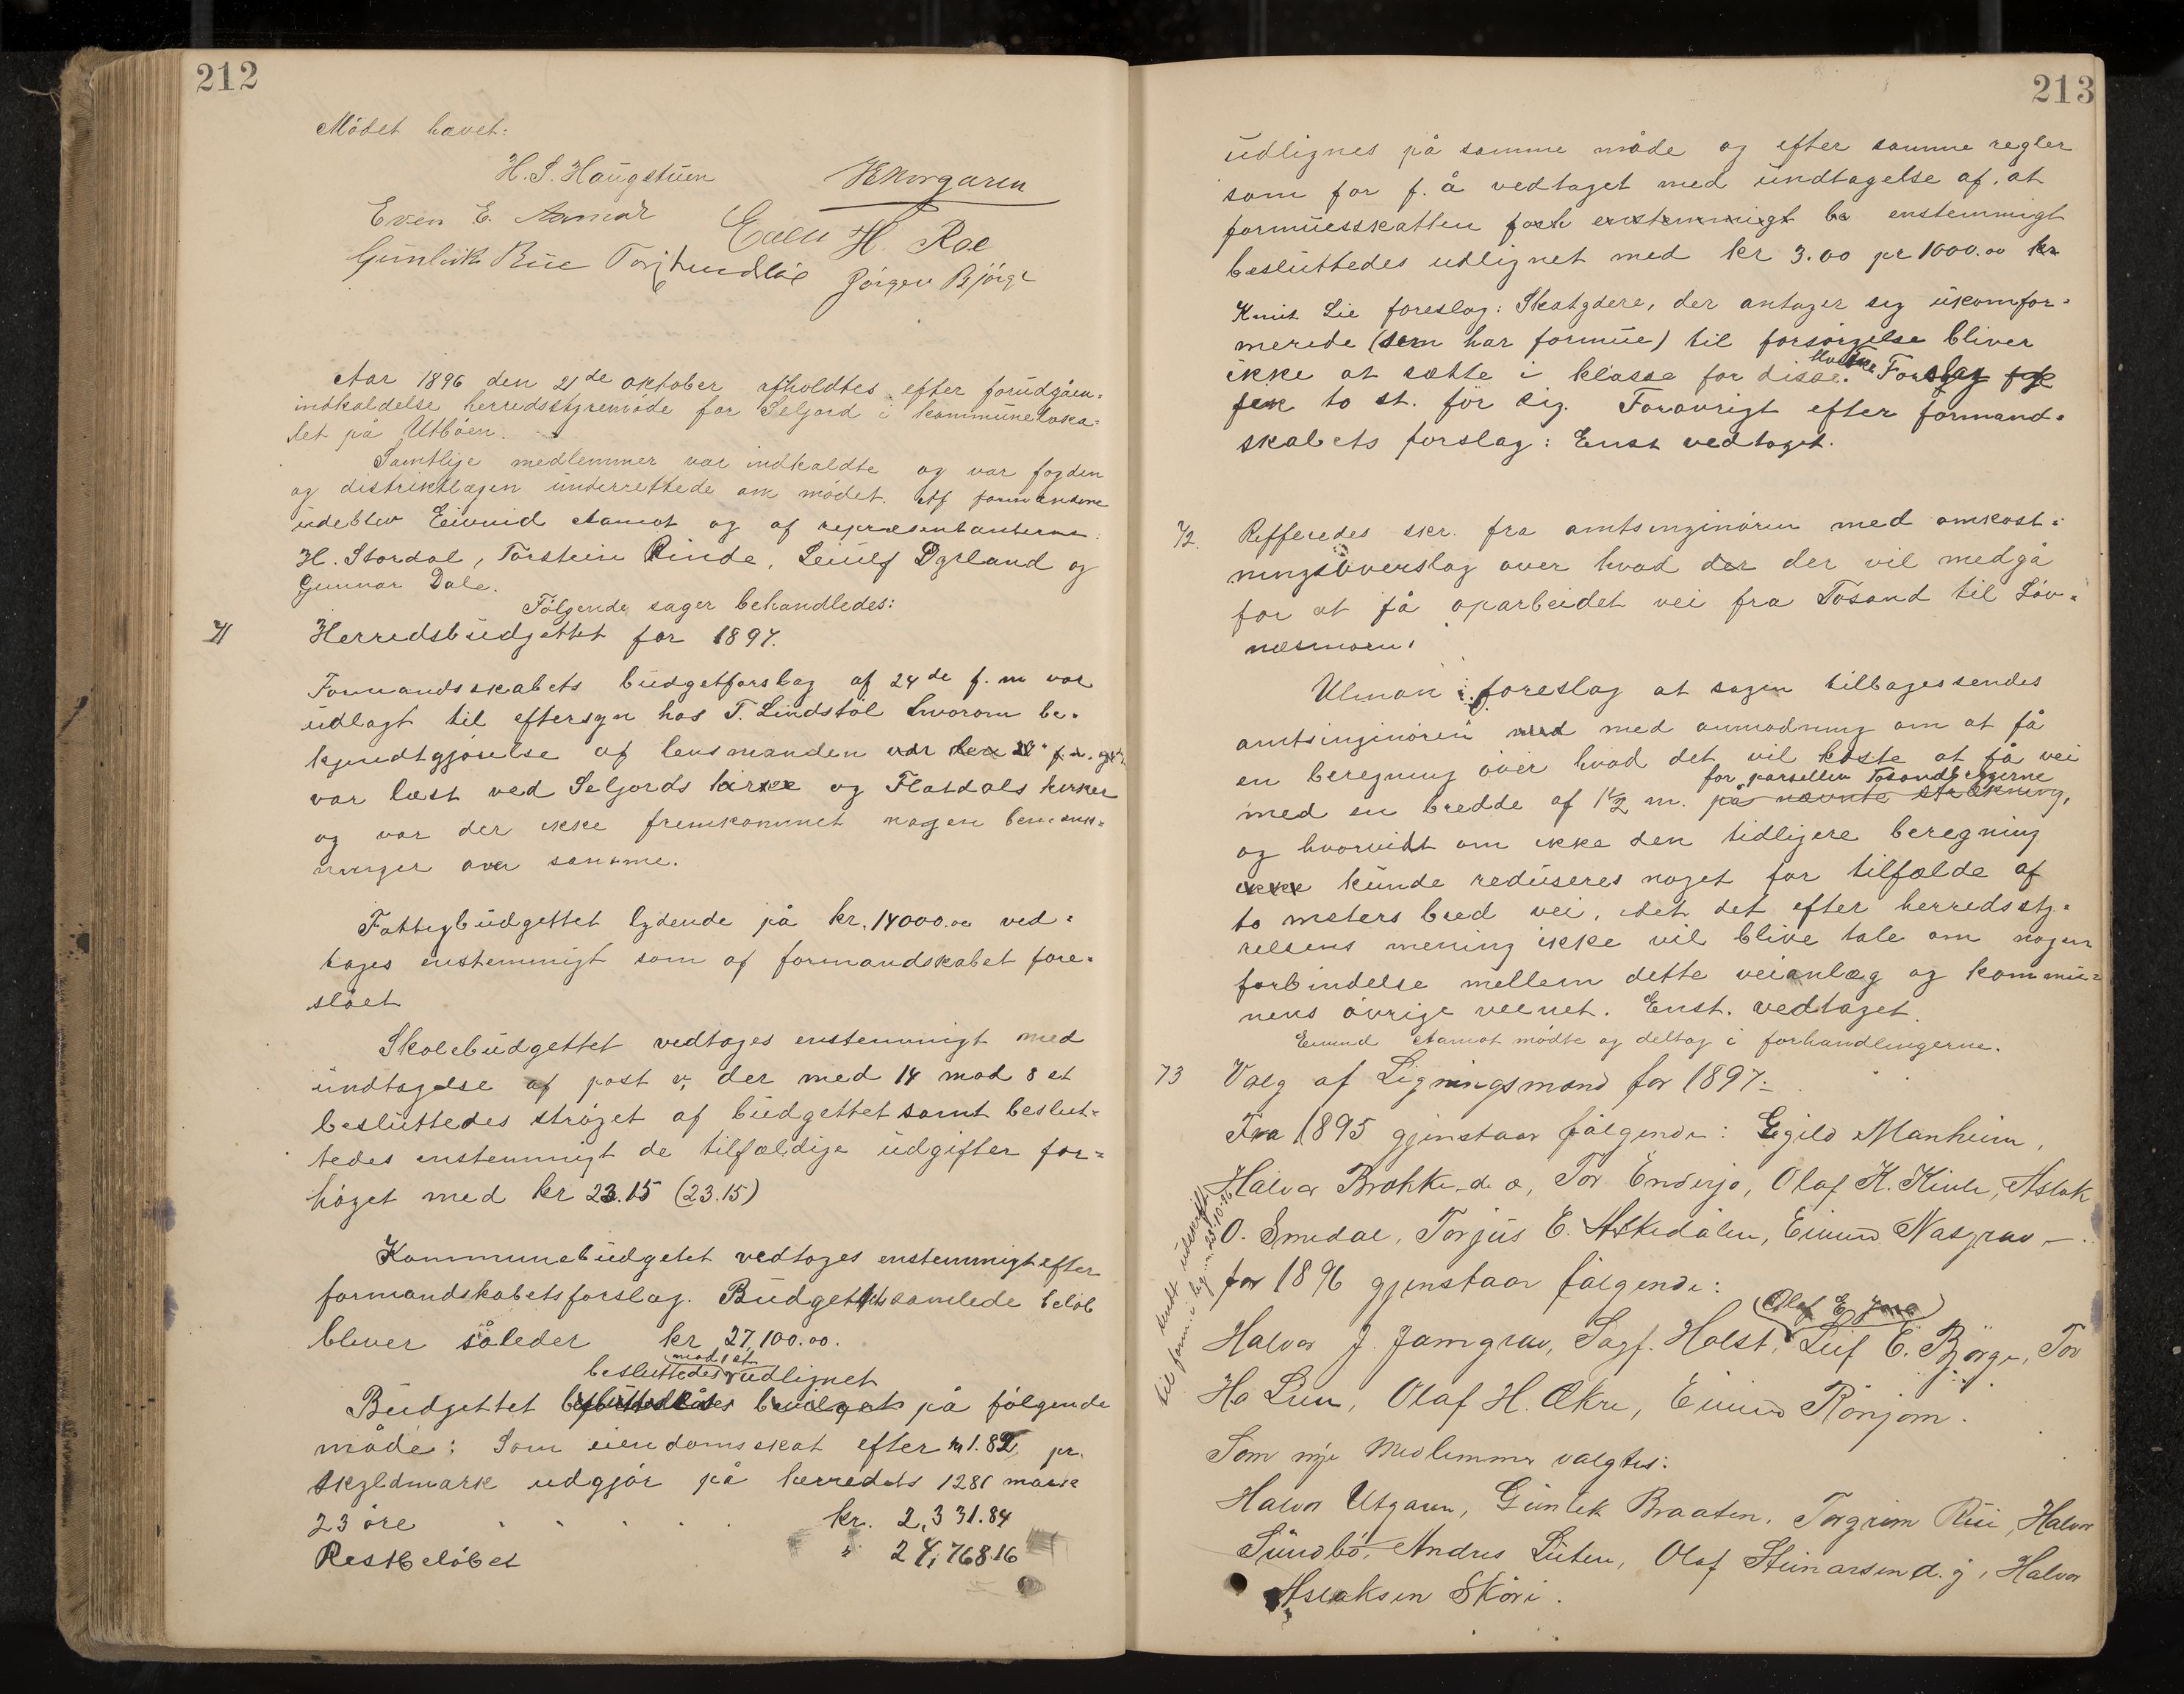 212
Mödet hævet:
H. S. Haugstuen
Even E. Aamot
Eilev H. Roe
Gunleik Rue
Jörgen Björge
Aar 1896 den 21de oktober afholdtes efter forudgåen-
indkaldelse herredsstyremöde for Seljord i kommuneloka-
let på Utböen.
Samtlige medlemmer var indkaldte og var fogden
og distriktlægen underrettede om mödet. Af formændene
udeblev Eivind Aamot og af repræsentanterne
H. Stordal, Torstein Rinde, Leiulf Dyrland og
Gunnar Dale.
Fölgende sager behandledes:
71 Herredsbudgettet for 1897.
Formandsskabets budgetforslag af 24de f. m var
udlagt til eftersyn hos T. Lindstöl hvorom be-
kjendtgjörelse af lensmanden var den
var læst ved Seljords kirke og Flatdals kirker
og var der ikke fremkommet nogen bemærk-
ninger over samme.
Fattigbudgettet lydende på kr. 14000.00 ved-
tages enstemmigt som af formandskabet fore-
slået
Skolebudgettet vedtages enstemmigt med
undtagelse af post v, der med 14 mod 8 st
besluttedes ströget af budgettet samt beslut-
tedes enstemmigt de tilfældige udgifter for-
höget med kr 23.15 (23.15)
Kommunebudgetet vedtoges enstemmigt efter
formandskabets forslag. Budgettets samlede belöb
bliver således kr 27,100.00.
mod 1 st.
besluttedes udlignet
Budgettet bevilget på fölgende
måde: Som eiendomsskat efter kr 1.82 pr.
skyldmark udgjör på herredets 1281 mark
23 öre . . . . . kr. 2,331.84
Restbelöbet " 24,768.16
213
udlignes på samme måde og efter samme regler
som for f. å vedtaget med undtagelse af, at
formuesskatten enstemmigt be enstemmigt
besluttedes udlignet med kr 3.00 pr 1000.00 kr
Knut Lie foreslog: Skatydere, der antager sig ukomfor-
merede (som har formue) til forsörgelse bliver
ikke at sætte i klasse for disse. Forslag fik
fik to st. för sig. Forövrigt efter formand-
skabets forslag: Enst vedtaget.
72. Refferedes skr. fra amtsinginören med omkost-
ningsöverslag over hvad der der vil medgå
for at få oparbeidet vei fra Tosand til Löv-
næsmoen.
Ulman foreslog at sagen tilbagessendes
amtsinginören med med anmodning om at få
en beregning över hvad det vil koste at få vei
for parsellen Tosandbyggerne
med en bredde af 1½ m. på nævnte strækning,
og hvorvidt om ikke den tidligere beregning
ikke kunde reduseres noget for tilfælde af
to meters bred vei, idet det efter herredssty-
relsens mening ikke vil blive tale om nogen
forbindelse mellem dette veianlæg og kommu-
nens övrige veenet. Enst. vedtaget.
Eivind Aamot mödte og deltog i forhandlingerne.
73 Valg af Ligningsmænd for 1897:
Fra 1895 gjenstaar fölgende: Eigild Manheim,
Halvor Brokke d. æ, Tor Enderjo, Olaf K. Kivle, Aslak
O. Smedal, Torjus E. Askedalen, Eivind Nasgrav –
for 1896 gjenstaar fölgende:
Halvor J. Jamgrav, Sagf. Holst, Leif E. Björge, Tor
H. Lien, Olaf H. Ækre, Eivind Rönjom.
Som nye medlemmer valgtes:
Halvor Utgaren, Gunleik Braaten, Torgrim Rue, Halvor
Sundbö, Andres Liiten, Olaf Steinarsen d. y, Halvor
Aslaksen Sköri.
sendt udskrift